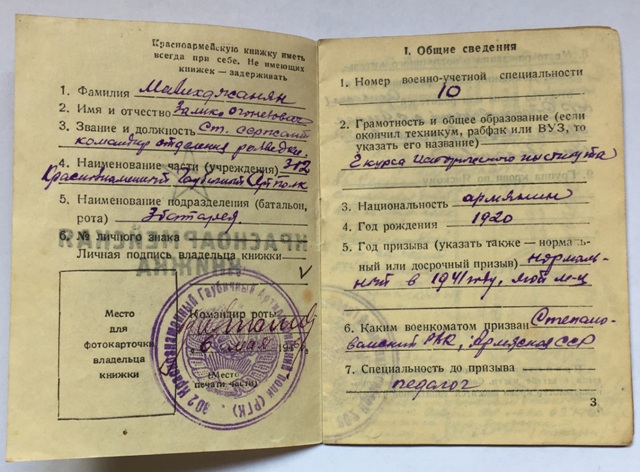 Красноармейскую книжку иметь
всегда при себе. Не имеющих
книжек — задерживать
1. Фамилия Малхджанян
2. Имя и отчество
3. Звание и должность Ст. сержант
командир отделения разведки
4. Наименование части (учреждения) 302
Краснознаменный Гаубичный Арт полк
5. Наименование подразделения (батальон,
рота) 3 батарея
6. № личного знака
Личная подпись владельца книжки
Место
для
фотокарточки
владельца
книжки
Командир роты
6 мая 194
(Место
печати части)
302 Краснознаменный Гаубичный Артиллерийский полк (РГК)
КРАСНОАРМЕЙСКАЯ
КНИЖКА
I. Общие сведения
1. Номер военно-учетной специальности
10
2. Грамотность и общее образование (если
окончил техникум, рабфак или ВУЗ, то
указать его название)
2 курса института
3. Национальность армянин
4. Год рождения 1920
5. Год призыва (указать также — нормаль-
ный или досрочный призыв) нормаль-
ный в 1941 году, май м-ц
6. Каким военкоматом призван Степана-
ванский РВК, Армянская ССР
7. Специальность до призыва
педагог
3